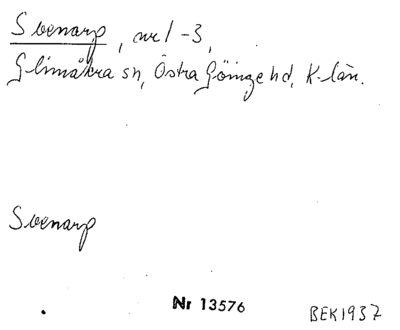 Svenarp, nr 1-3,
Glimåkra sn, Östra Göinge hd, K-län.
Svenarp
Nr 13576
BEK 1937